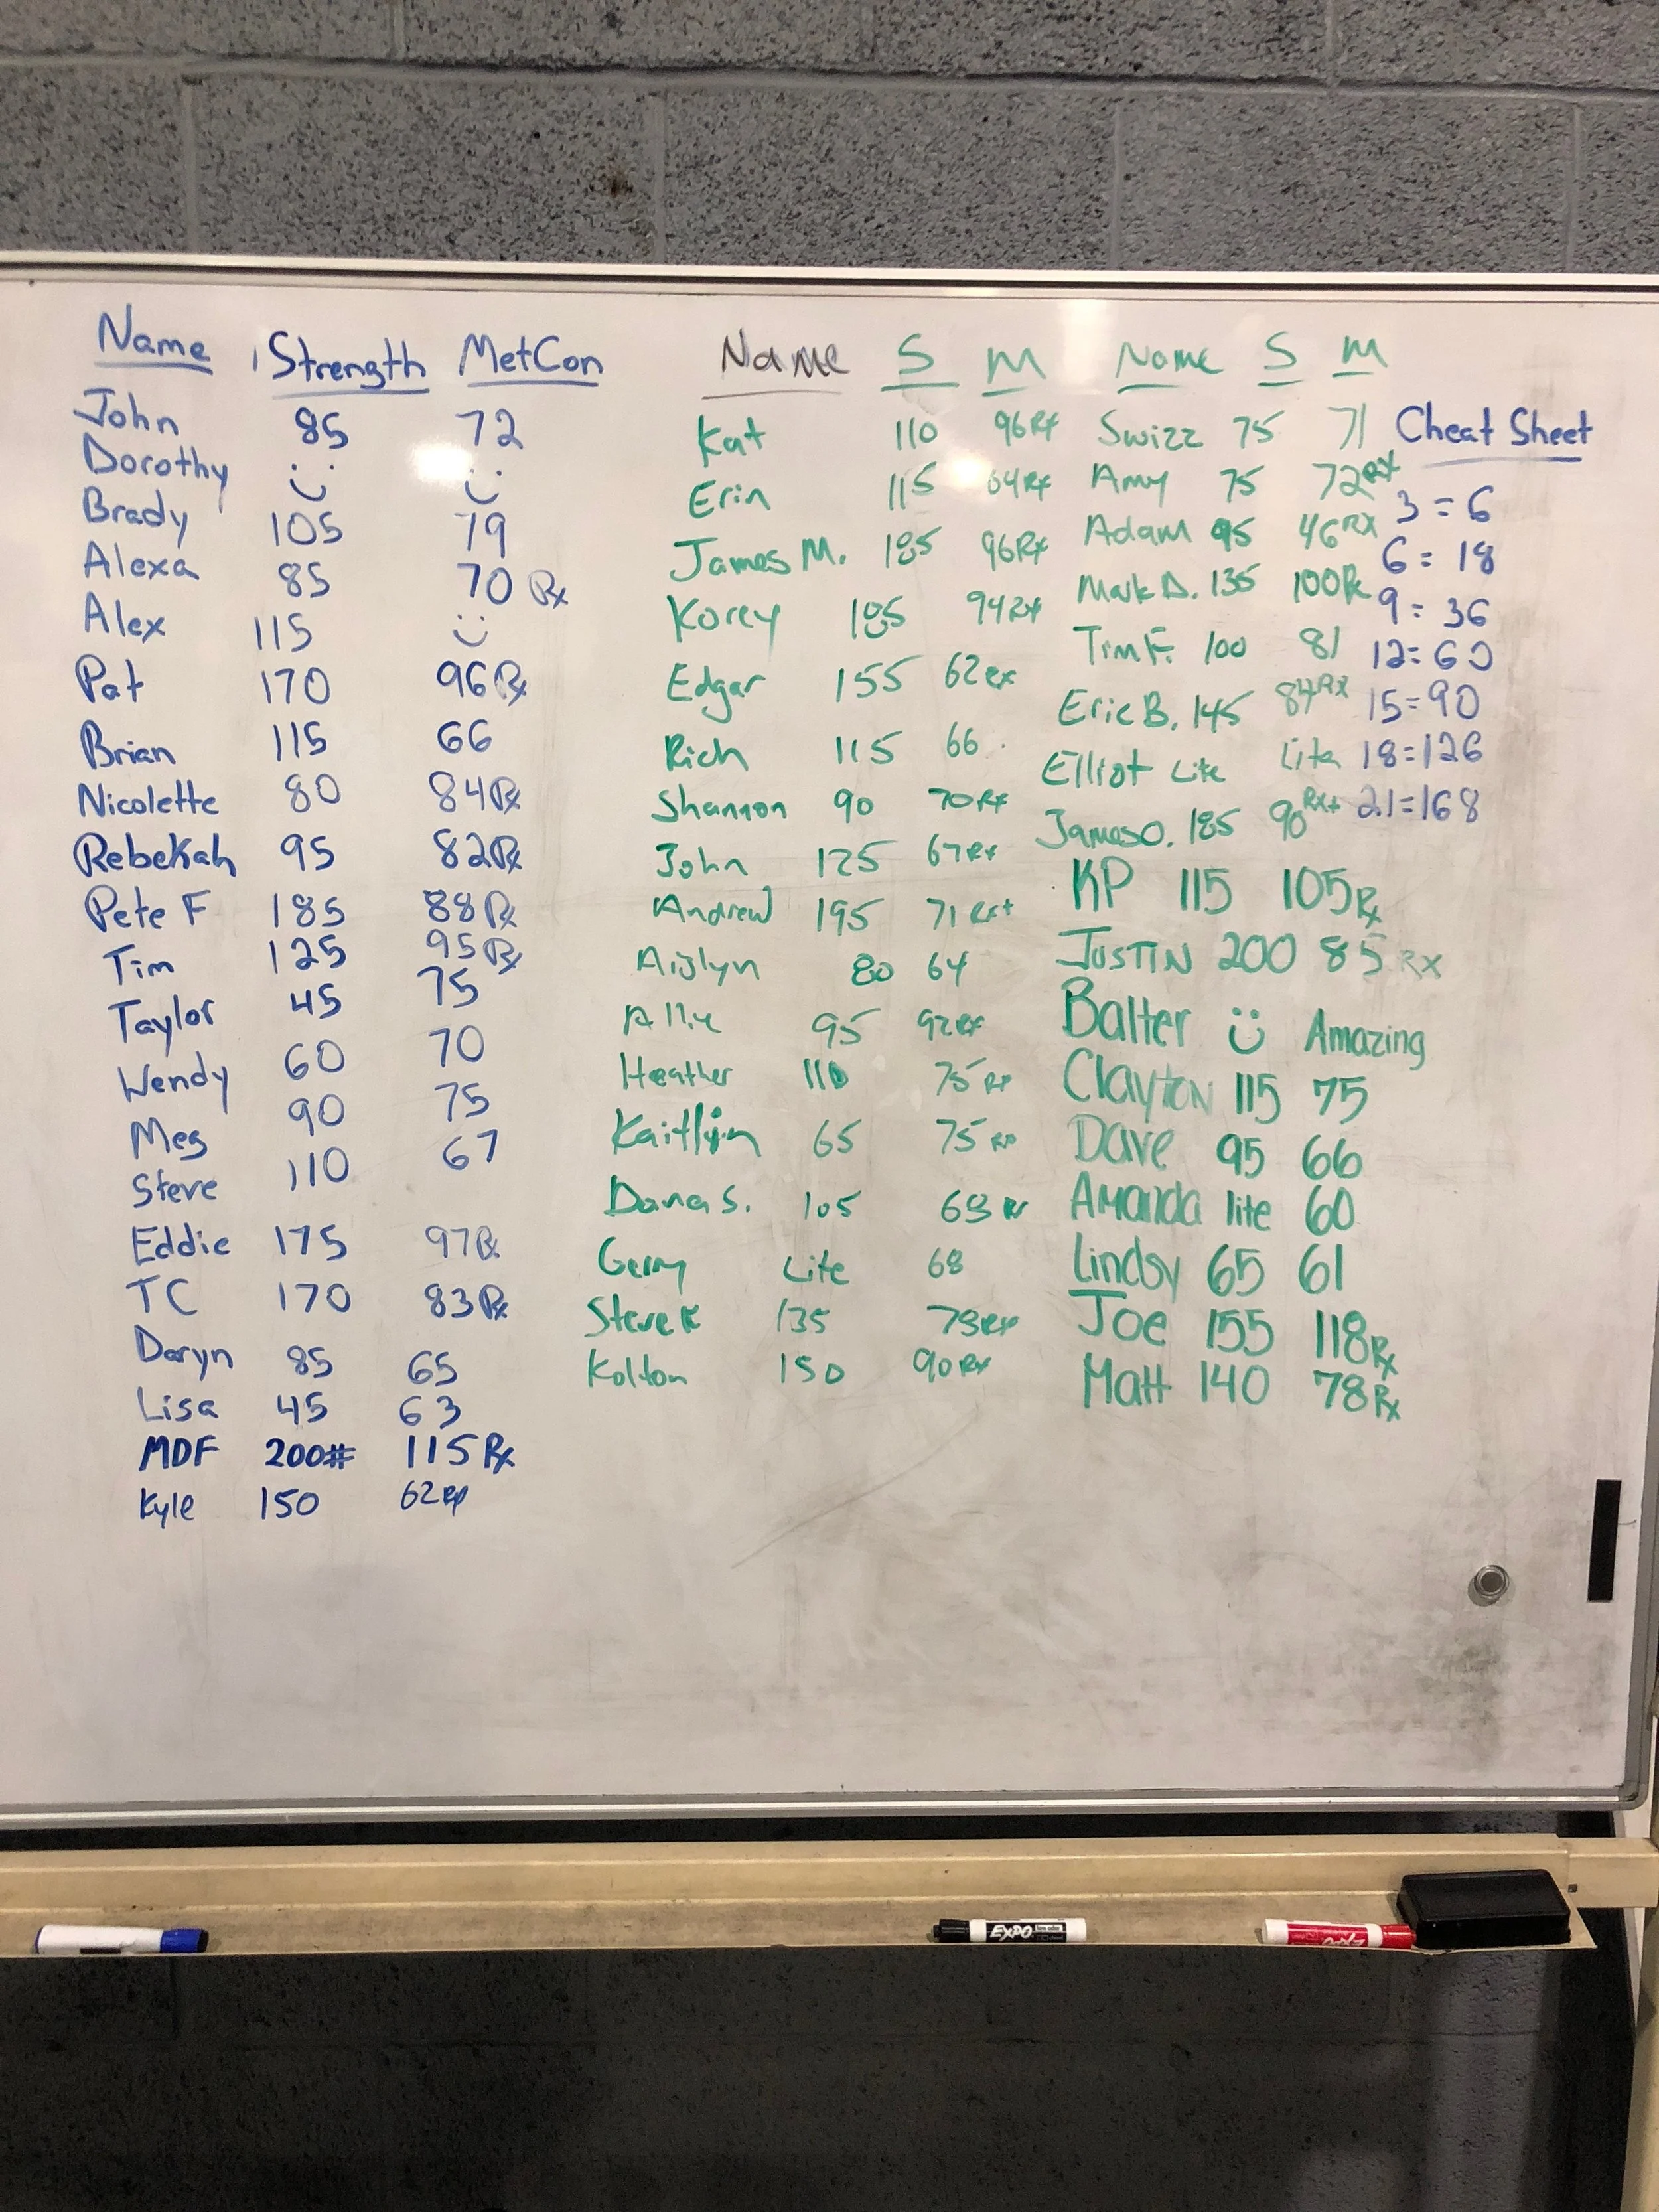 Name Strength MetCon
John 85 72
Dorothy
Brady 105 79
Alexa 85 70 Rx
Alex 115
Pat 170 96 Rx
Brian 115 66
Nicolette 80 84 Rx
Rebekah 95 82 Rx
Pete F 185 88 Rx
Tim 125 95 Rx
Taylor 45 75
Wendy 60 70
Meg 90 75
Steve 110 67
Eddie 175 97 Rx
TC 170 83 Rx
Daryn 85 65
Lisa 45 63
MDF 200# 115 Rx
Kyle 150 62
Name S M
Kat 110 96 Rx
Erin 115 Rx
James M. 185 96 Rx
Korey 185 94 Rx
Edgar 155 62 Rx
Rich 115 66
Shannon 90 70 Rx
John 125 67 Rx
Andrew 195 71 Rx+
80 64
Allie 95 92 Rx
Heather 110 75 Rx
Kaitlyn 65 75
Dana S. 105
Lite 68
Steve K 135 Rx
Kolton 150 90 Rx
Name S M
Swizz 75 71
Amy 75 72 RX
Adam 95 46 RX
Mark D. 135 100 Rx
Tim F. 100 81
Eric B. 145 84 Rx
Elliot Lite Lite
James O. 185 90 RX+
KP 115 105 Rx
JUSTIN 200 85 RX
Balter Amazing
Clayton 115 75
Dave 95 66
Amanda lite 60
Lindsy 65 61
Joe 155 118 Rx
Matt 140 78 Rx
Cheat Sheet
3 = 6
6 = 18
9 = 36
12 = 60
15 = 90
18 = 126
21 = 168
EXPO